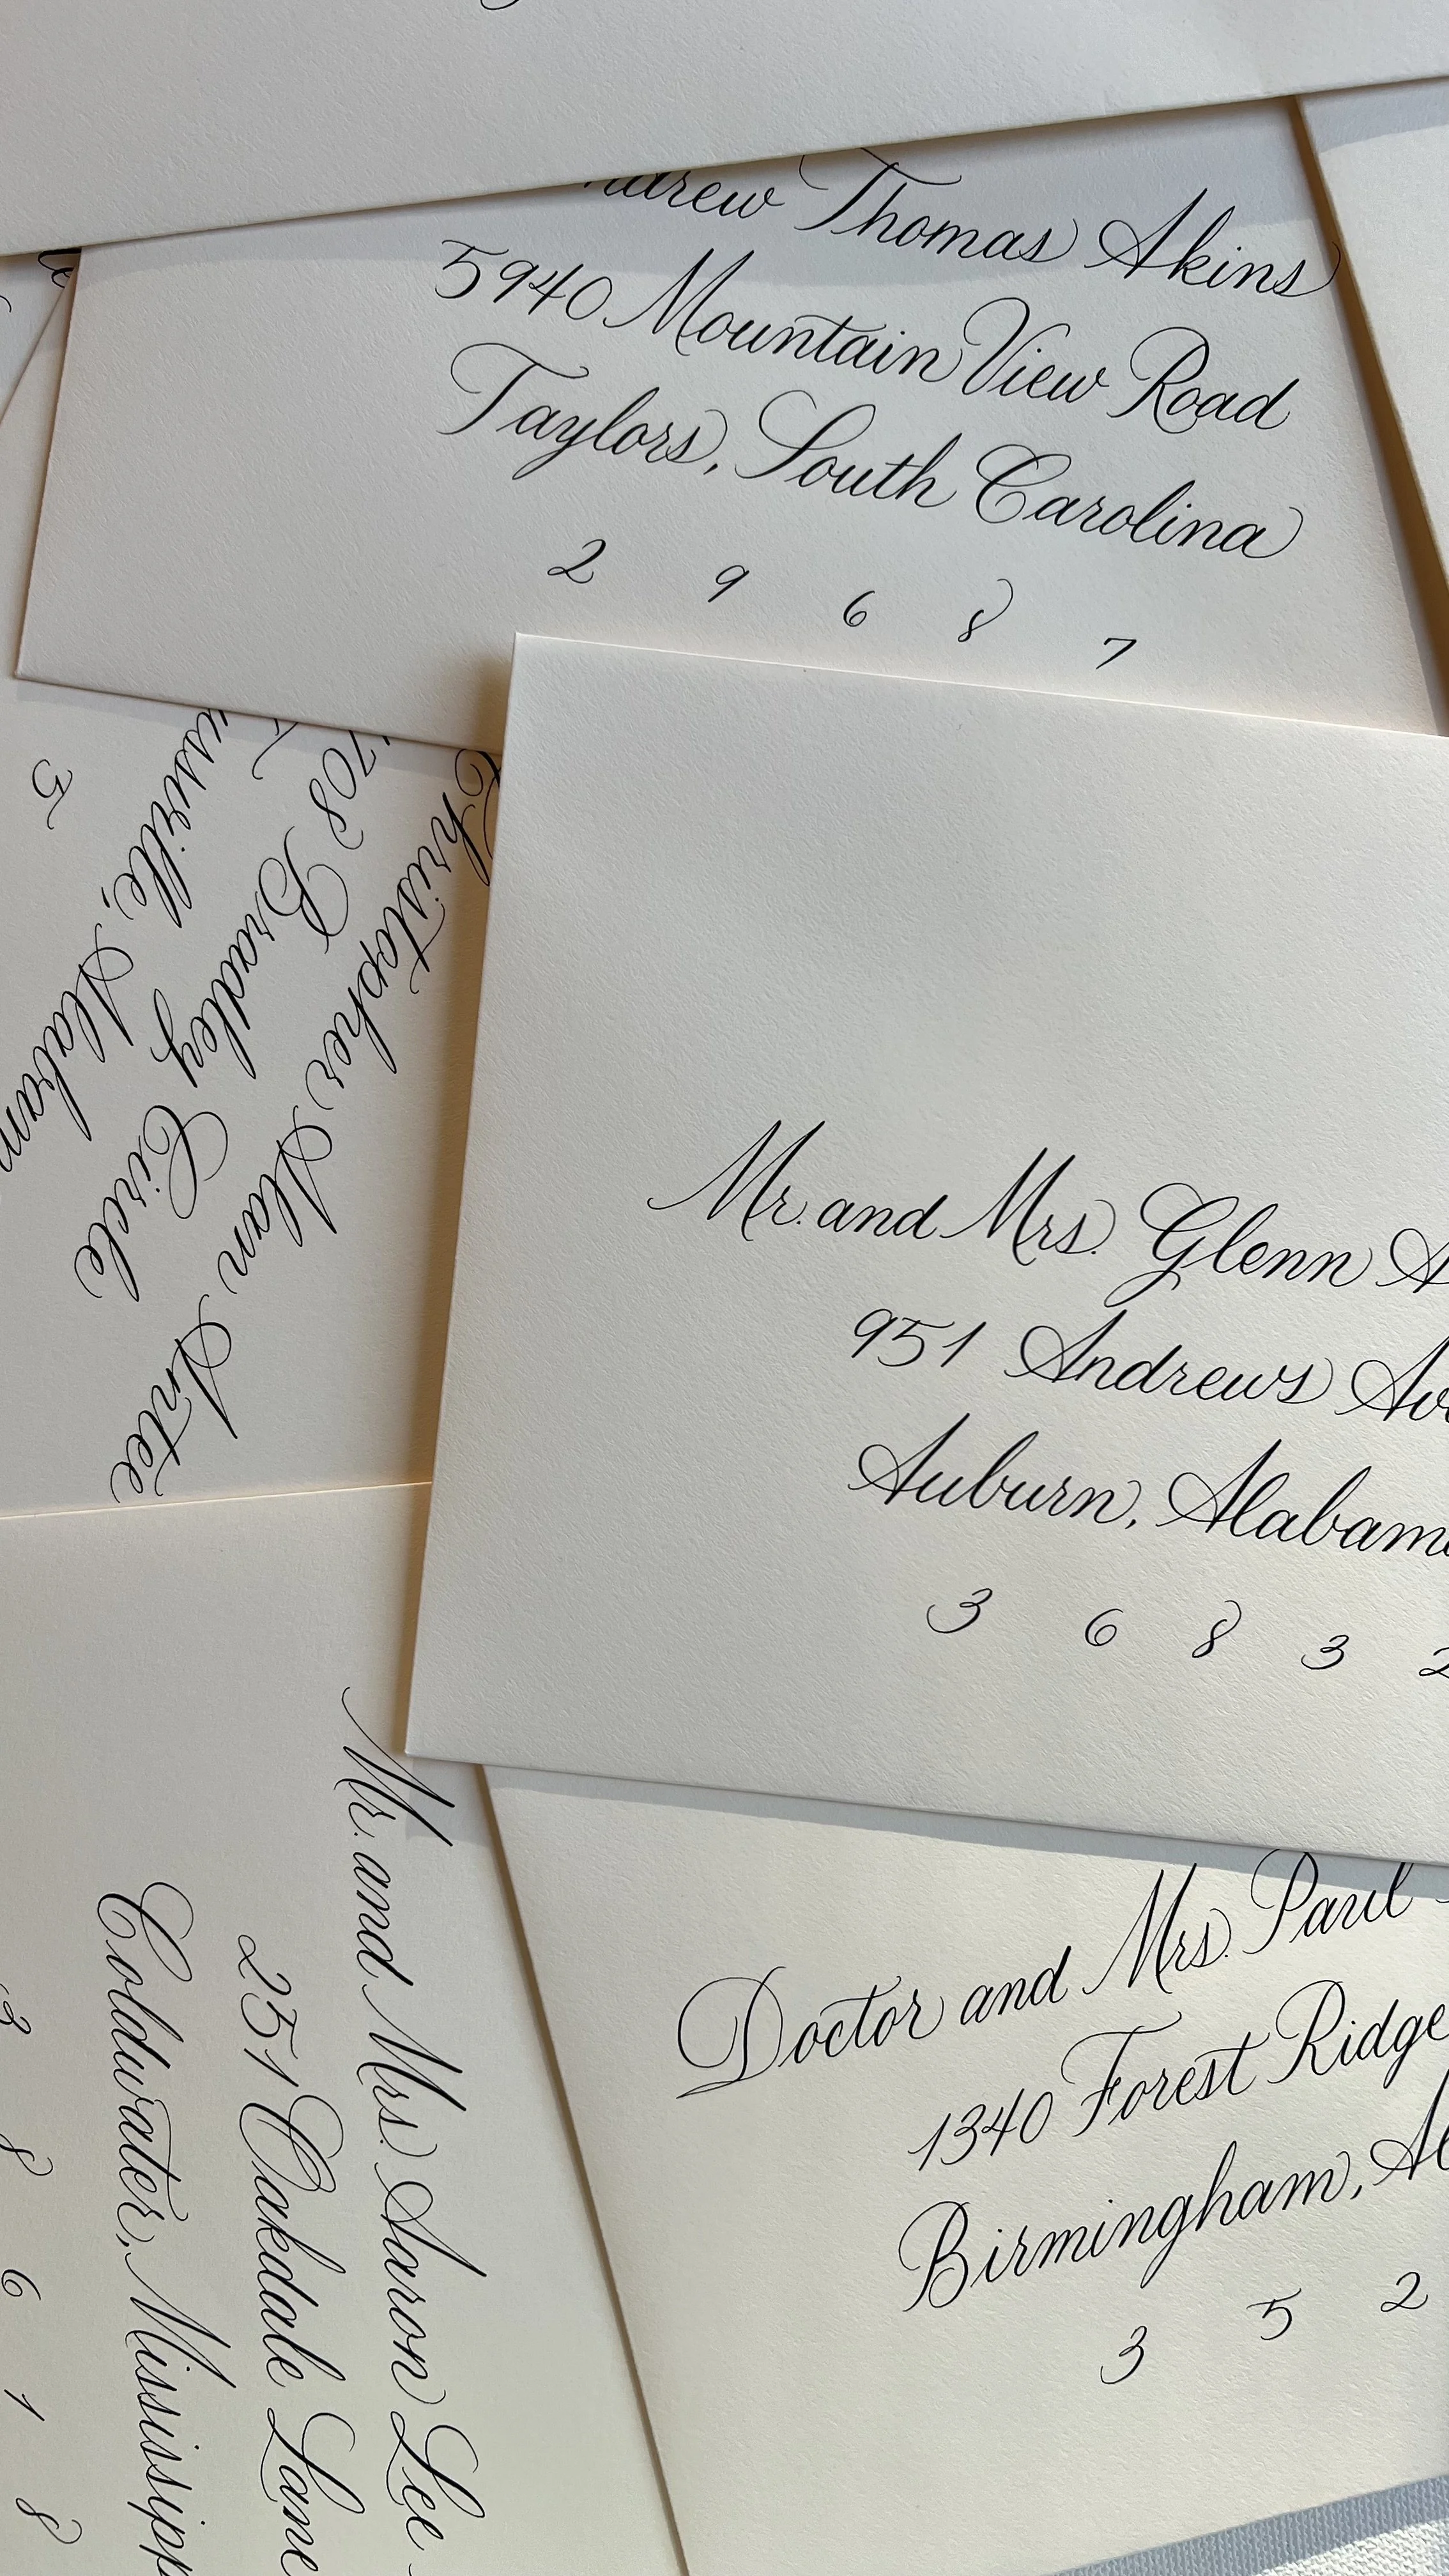 Thomas Akins
5940 Mountain View Road
Taylors, South Carolina
2 9 6 8 7
Christopher Alan
708 Bradley Circle
5
Mr. and Mrs. Glenn
951 Andrews
Auburn,
3 6 8 3 2
Mr. and Mrs. Aaron Lee
251 Oakdale Lane
Coldwater,
3 8 6 1 8
Doctor and Mrs. Paul
1340 Forest Ridge
Birmingham,
3 5 2